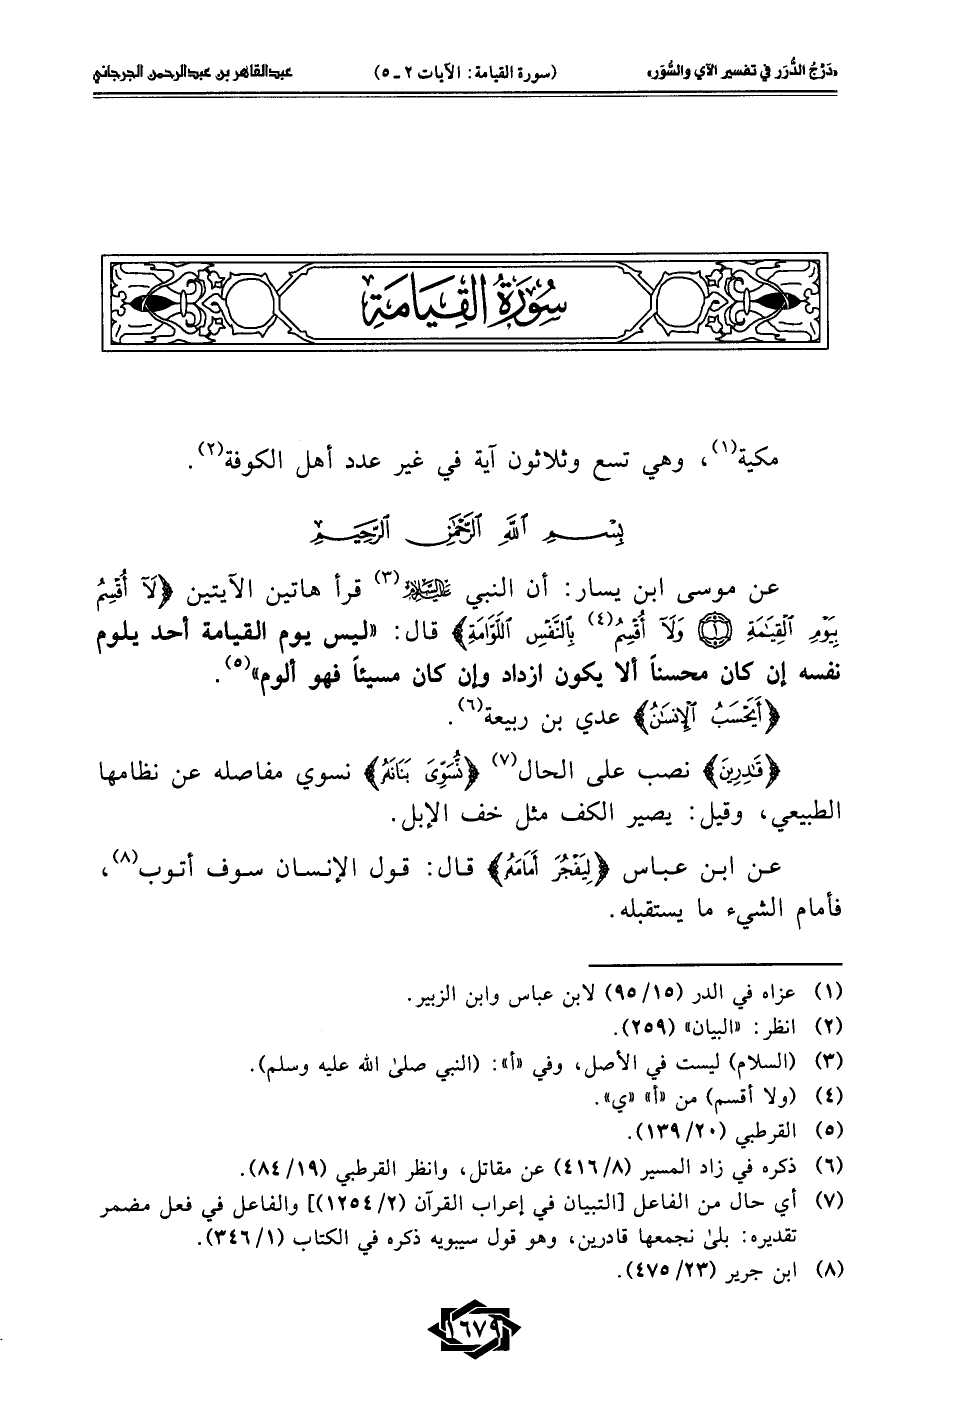 «دَرْجُ الدُّرَر في تفسير الآي والسُّوَر» (سورة القيامة: الآيات ٢ ـ ٥) عبدالقاهر بن عبدالرحمن الجرجاني
سُورَةُ القِيَامَةِ
مكية(١)، وهي تسع وثلاثون آية في غير عدد أهل الكوفة(٢).
بِسْمِ ٱللَّهِ ٱلرَّحْمَٰنِ ٱلرَّحِيمِ
عن موسى ابن يسار: أن النبي عليه السلام(٣) قرأ هاتين الآيتين ﴿لَآ أُقْسِمُ
بِيَوْمِ ٱلْقِيَٰمَةِ ۝١ وَلَآ أُقْسِمُ(٤) بِٱلنَّفْسِ ٱللَّوَّامَةِ﴾ قال: «ليس يوم القيامة أحد يلوم
نفسه إن كان محسناً ألا يكون ازداد وإن كان مسيئاً فهو ألوم»(٥).
﴿أَيَحْسَبُ ٱلْإِنسَٰنُ﴾ عدي بن ربيعة(٦).
﴿قَٰدِرِينَ﴾ نصب على الحال(٧) ﴿نُّسَوِّىَ بَنَانَهُۥ﴾ نسوي مفاصله عن نظامها
الطبيعي، وقيل: يصير الكف مثل خف الإبل.
عن ابن عباس ﴿لِيَفْجُرَ أَمَامَهُۥ﴾ قال: قول الإنسان سوف أتوب(٨)،
فأمام الشيء ما يستقبله.
(١) عزاه في الدر (٩٥/١٥) لابن عباس وابن الزبير.
(٢) انظر: «البيان» (٢٥٩).
(٣) (السلام) ليست في الأصل، وفي «أ»: (النبي صلىٰ الله عليه وسلم).
(٤) (ولا أقسم) من «أ» «ي».
(٥) القرطبي (١٣٩/٢٠).
(٦) ذكره في زاد المسير (٤١٦/٨) عن مقاتل، وانظر القرطبي (٨٤/١٩).
(٧) أي حال من الفاعل [التبيان في إعراب القرآن (١٢٥٤/٢)] والفاعل في فعل مضمر
تقديره: بلىٰ نجمعها قادرين، وهو قول سيبويه ذكره في الكتاب (٣٤٦/١).
(٨) ابن جرير (٤٧٥/٢٣).
١٦٧٩